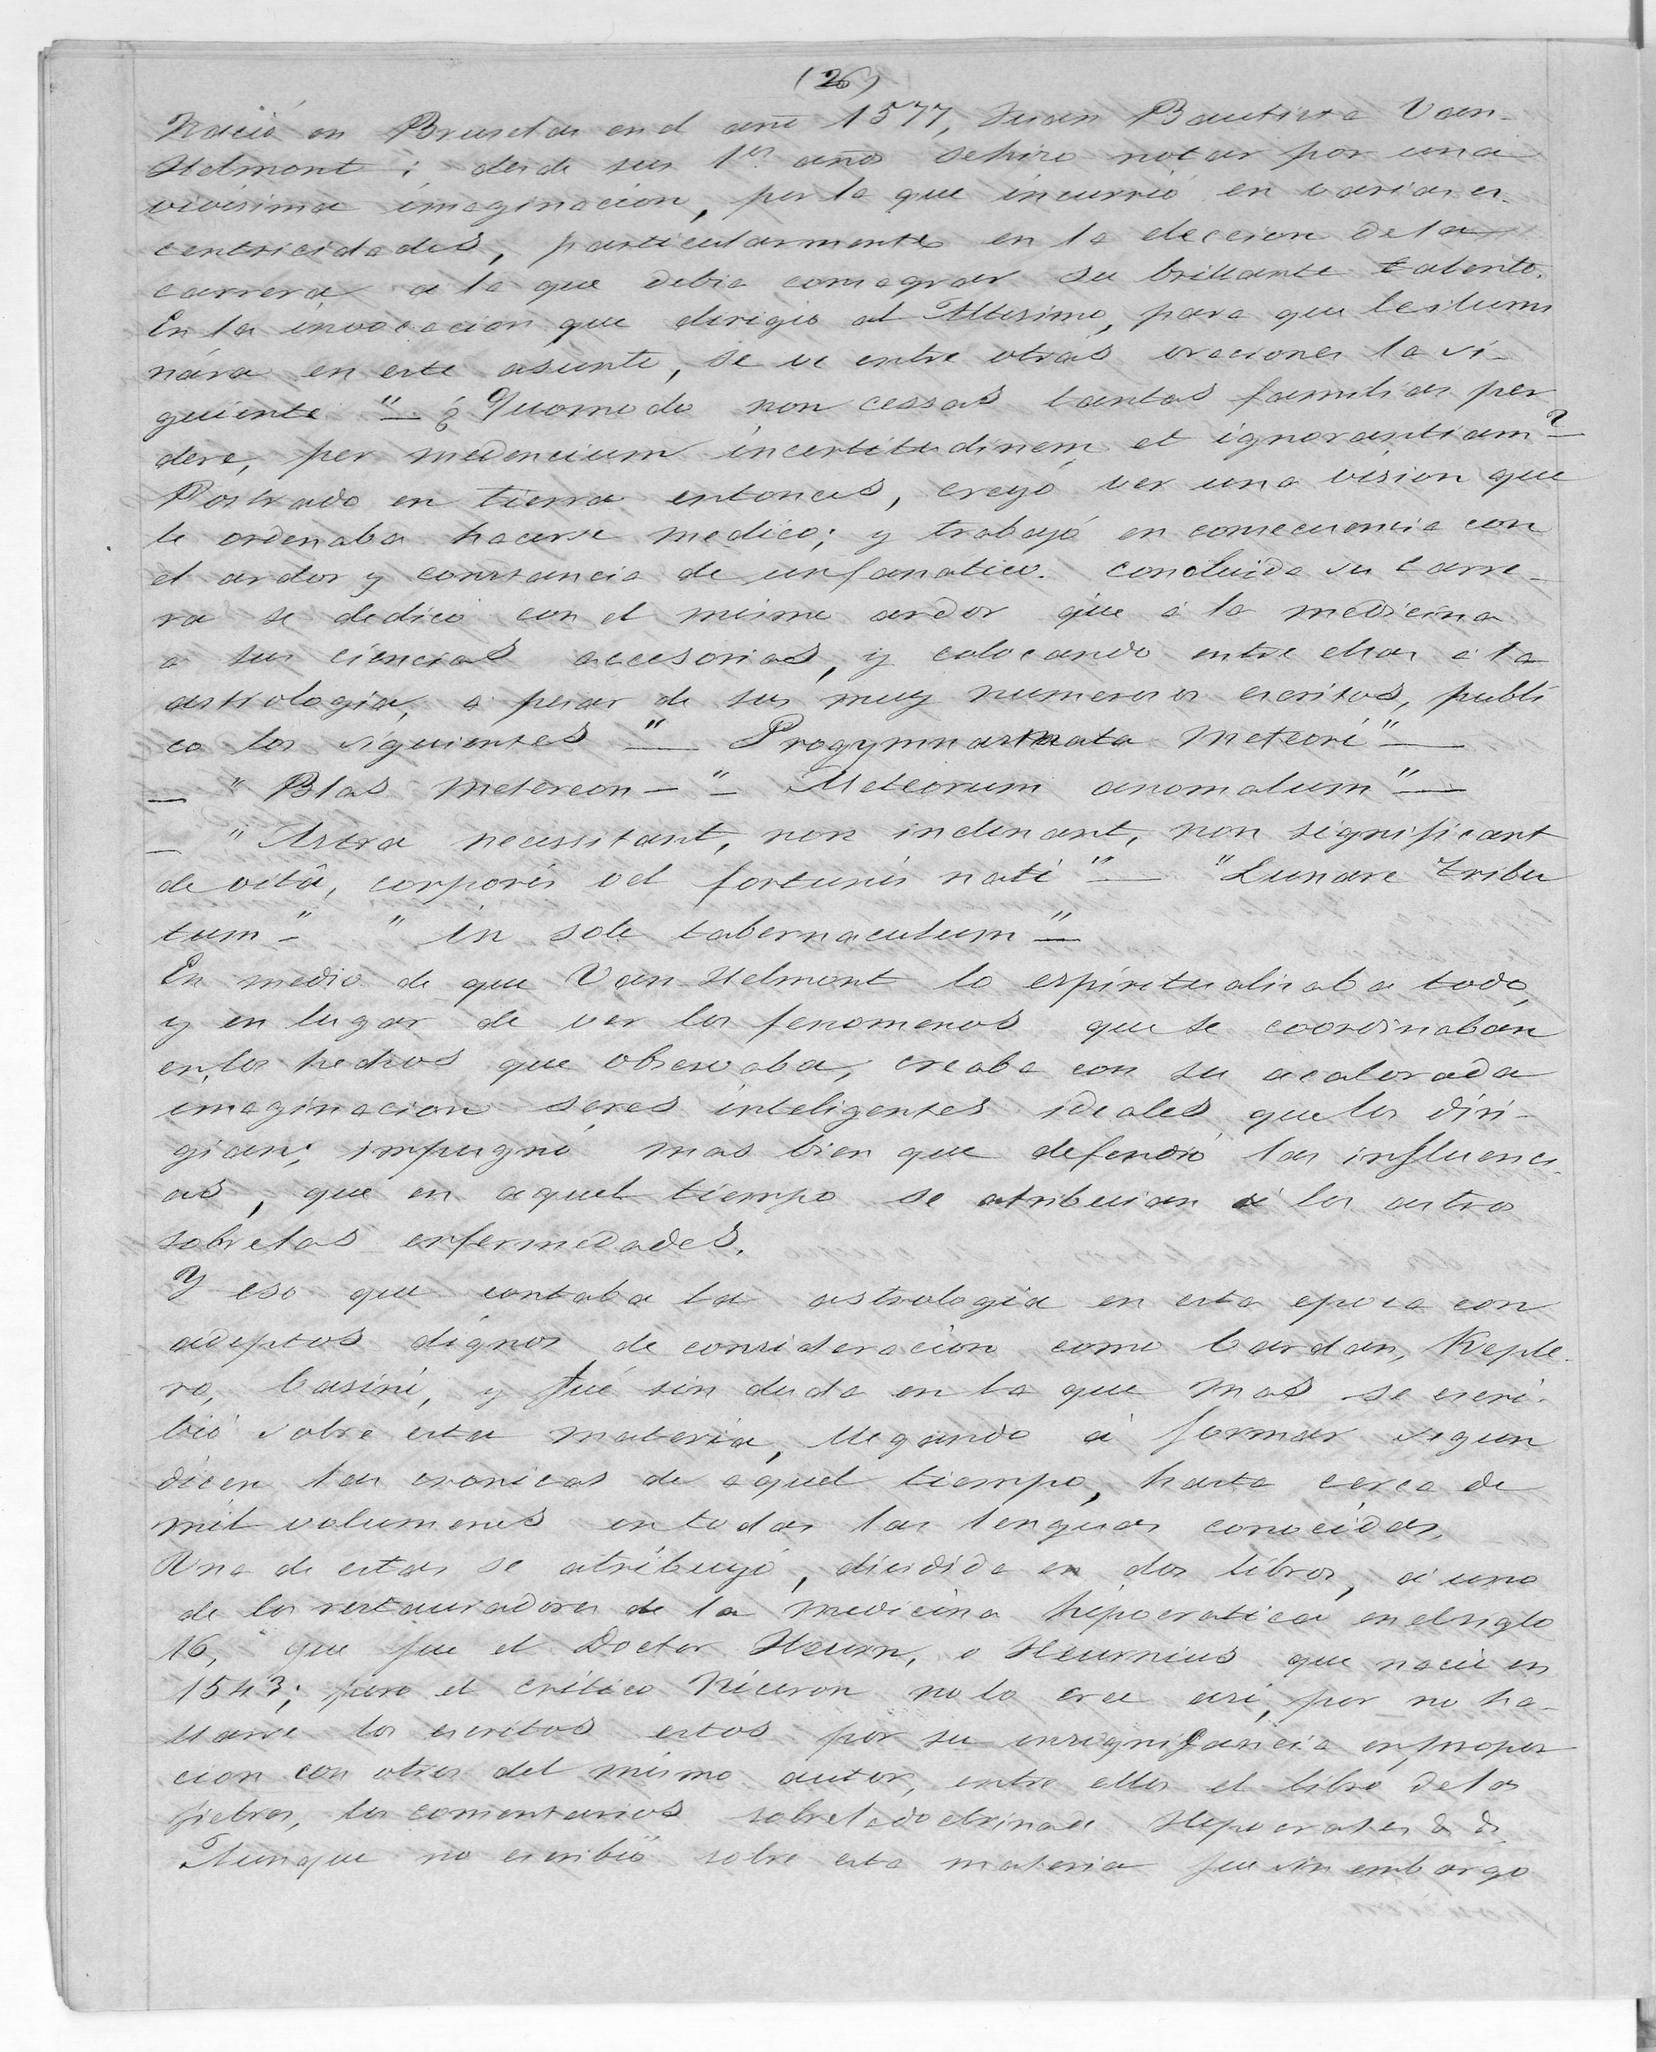 (26)
Nació en Bruselas en el año 1577, Juan Bautista Van-
Helmont; desde sus 1os años sehizo notar por una
vivisima imaginacion, por la que incurrió en varias es-
centricidades, particularmente en la eleccion dela
carrera a la que debia consagrar su brillante talento.
En la invocacion que dirigió al Altisimo, para que leilumi
nára en este asunto, se ve entre otras oraciones la si-
guiente "— ¿Quomodo non cessas tantas familias per
dere, per medencium incertitudinem et ignorantiam?"—
Postrado en tierra entonces, creyó ver una vision que
le ordenaba hacerse medico; y trabajó en consecuencia con
el ardor y constancia de unfanatico. Concluida su carre-
ra se dedicó con el mismo ardor que á la medicina
a sus ciencias accesorias, y colocando entre ellas a la
astrologia, a pesar de sus muy numerosos escritos, publi
co los siguientes "— Progymnasmata Meteori"—
— "Blas Metereon—"— Meteorum anomalum"—
— "Astra necessitant, non inclinant, non significant
de vitâ, corporis vel fortunis nati"— "Lunare tribu
tum—" "in sole tabernaculum"—
En medio de que Van-Helmont lo espiritualisaba todo,
y en lugar de ver los fenomenos que se coordinaban
enlos hechos que observaba, creaba con su acalorada
imaginacion seres inteligentes ideales quelos diri-
gian; impugnó mas bien que defendió las influenci-
as, que en aquel tiempo se atribuian á los astros
sobrelas enfermedades.
Y eso que contaba la astrologia en esta epoca con
adeptos dignos de consideracion como Cardan, Keple-
ro, Casini, y fué sin duda en la que mas se escri-
bió sobre esta materia, llegando á formar segun
dicen las cronicas de aquel tiempo, hasta cerca de
mil volumenes entodas las lenguas conocidas.
Una de estas se atribuyó, dividida en dos libros, á uno
de los restauradores de la medicina hipocratica enelsiglo
16, que fue el Doctor Heurn, o Heurnius que nació en
1543; pero el critico Niceron nolo cree asi, por no ha-
llarse los escritos estos por su insignificancia enpropor
cion con otros del mismo autor, entre ellos el libro delas
fiebres, los comentarios sobreladoctrinade Hipocrates & &.
Aunque no escribió sobre esta materia fue sin embargo